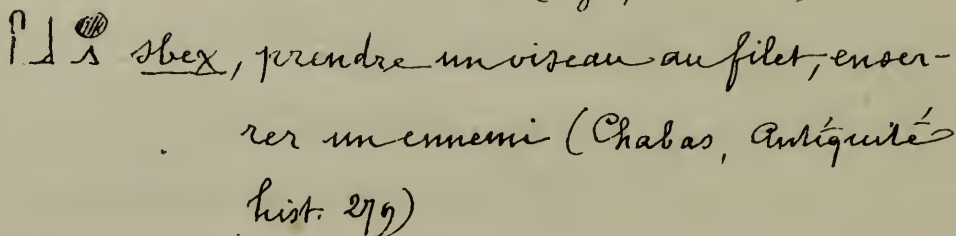 𓋴𓃀𓐍𓂻 sbeχ, prendre un oiseau au filet, enser-
rer un ennemi (Chabas, Antiquité
hist. 279)